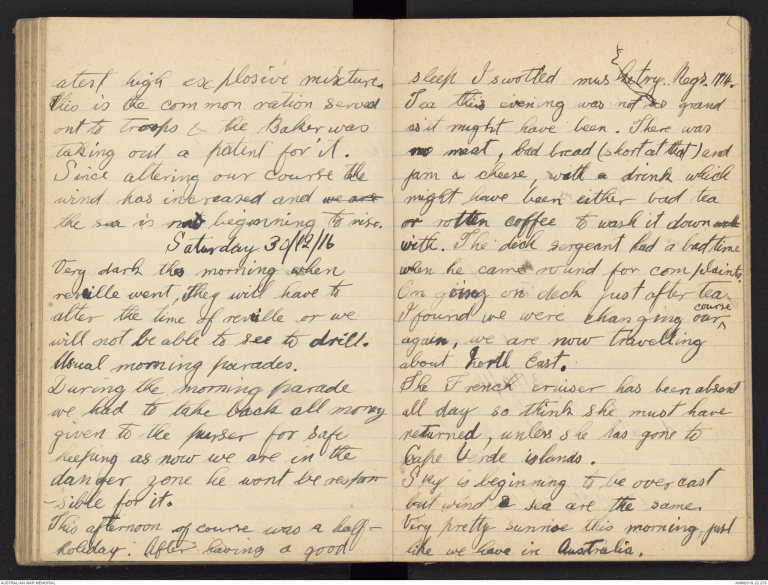 atest high explosive mixture.
This is the common ration served
out to troops & the Baker was
taking out a patent for it.
Since altering our course the
wind has increased and we are
the sea is now beginning to rise.
Saturday 30/12/16
Very dark this morning when
reville went, they will have to
alter the time of reville or we
will not be able to see to drill.
Usual morning parades.
During the morning parade
we had to take back all money
given to the purser for safe
keeping as now we are in the
danger zone he wont be respon
-sible for it.
This afternoon of course was a half-
holiday. After having a good
sleep I swotted mus ketry. Regs. 1914.
Tea this evening was not as grand
as it might have been. There was
no meat, bad bread (short at that) and
jam & cheese, with a drink which
might have been either bad tea
or rotten coffee to wash it down
with. The deck sergeant had a bad time
when he came round for complaints.
On going on deck just after tea
I found we were changing our course
again, we are now travelling
about North East.
The French cruiser has been absent
all day so think she must have
returned, unless she has gone to
Cape Verde islands.
Sky is beginning to be overcast
but wind & sea are the same.
Very pretty sunrise this morning, just
like we have in Australia.
AUSTRALIAN WAR MEMORIAL